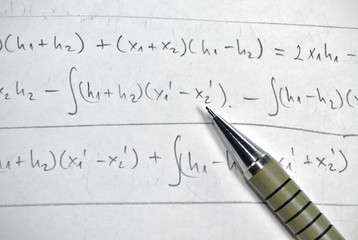 )(h₁+h₂) + (x₁+x₂)(h₁-h₂) = 2x₁h₁ -
x₂h₂ - ∫(h₁+h₂)(x₁' - x₂'). - ∫(h₁-h₂)(
h₁+h₂)(x₁'-x₂') + ∫(h₁-h x₁'+x₂')